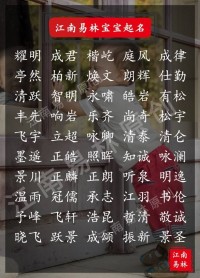 江南易林宝宝起名
耀明 成君 楷屹 庭风 成律
亭然 柏新 焕文 朗辉 仕勤
清跃 智明 永啸 皓岩 有松
丰先 响岩 乐齐 尚奇 松宇
飞宇 立超 咏卿 清泰 清仑
墨遥 正皓 照晖 知诚 咏澜
景川 正麟 正朗 听泉 明逸
温雨 冠儒 承志 江羽 书伦
予峰 飞轩 浩昆 哲清 敬诚
晓飞 跃景 成颂 振新 景圣
江南
易林